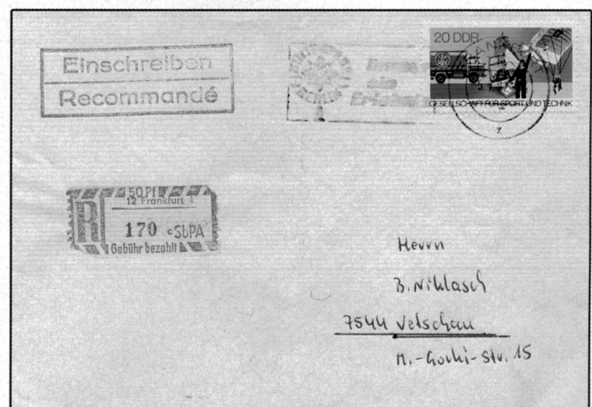 Einschreiben
Recommandé
20 DDR
GESELLSCHAFT FÜR SPORT UND TECHNIK
50 Pf
12 Frankfurt 1
R
170 eSbPA
Gebühr bezahlt
Herrn
B. Niklasch
7544 Vetschau
M.-Gorki-Str. 15